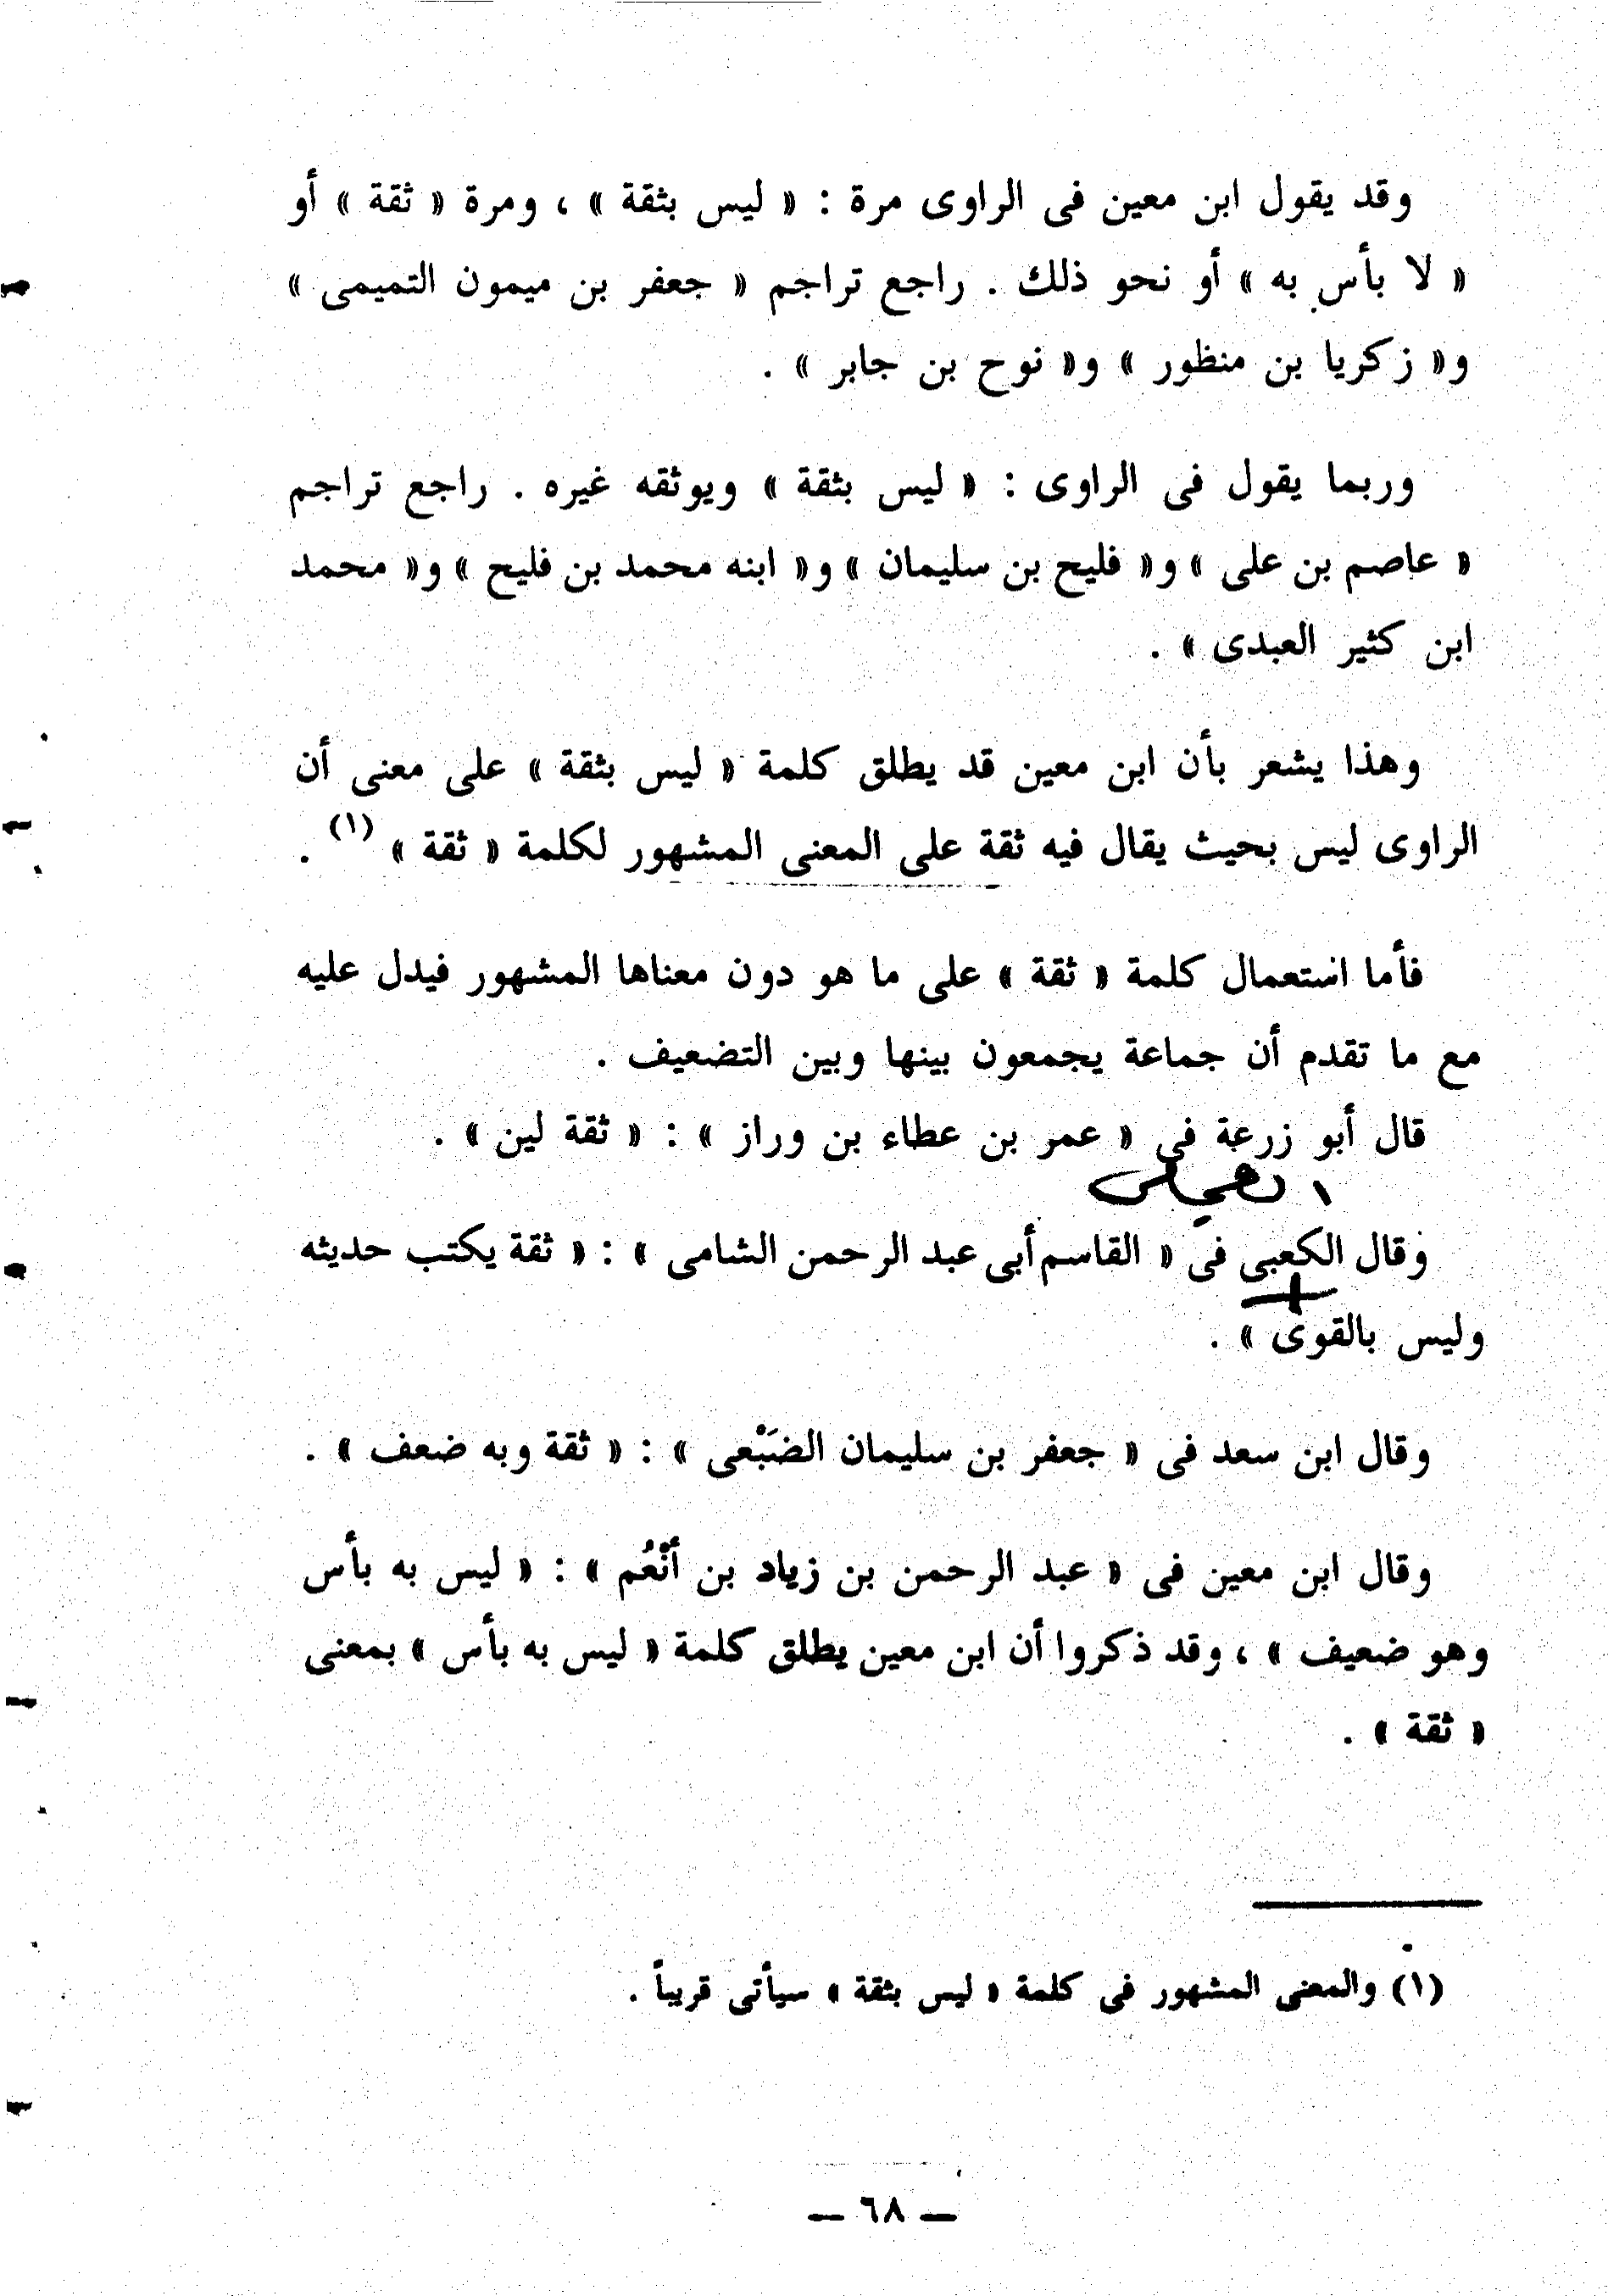 وقد يقول ابن معين فى الراوى مرة : « ليس بثقة » ، ومرة « ثقة » أو
« لا بأس به » أو نحو ذلك . راجع تراجم « جعفر بن ميمون التميمى »
و« زكريا بن منظور » و« نوح بن جابر » .
وربما يقول فى الراوى : « ليس بثقة » ويوثقه غيره . راجع تراجم
« عاصم بن على » و« فليح بن سليمان » و« ابنه محمد بن فليح » و« محمد
ابن كثير العبدى » .
وهذا يشعر بأن ابن معين قد يطلق كلمة « ليس بثقة » على معنى أن
الراوى ليس بحيث يقال فيه ثقة على المعنى المشهور لكلمة « ثقة » (١) .
فأما استعمال كلمة « ثقة » على ما هو دون معناها المشهور فيدل عليه
مع ما تقدم أن جماعة يجمعون بينها وبين التضعيف .
قال أبو زرعة فى « عمر بن عطاء بن وراز » : « ثقة لين » .
وقال الكعبى فى « القاسم أبى عبد الرحمن الشامى » : « ثقة يكتب حديثه
وليس بالقوى » .
وقال ابن سعد فى « جعفر بن سليمان الضَبْعى » : « ثقة وبه ضعف » .
وقال ابن معين فى « عبد الرحمن بن زياد بن أنْعُم » : « ليس به بأس
وهو ضعيف » ، وقد ذكروا أن ابن معين يطلق كلمة « ليس به بأس » بمعنى
« ثقة » .
(١) والمعنى المشهور فى كلمة « ليس بثقة » سيأتى قريباً .
— ٦٨ —